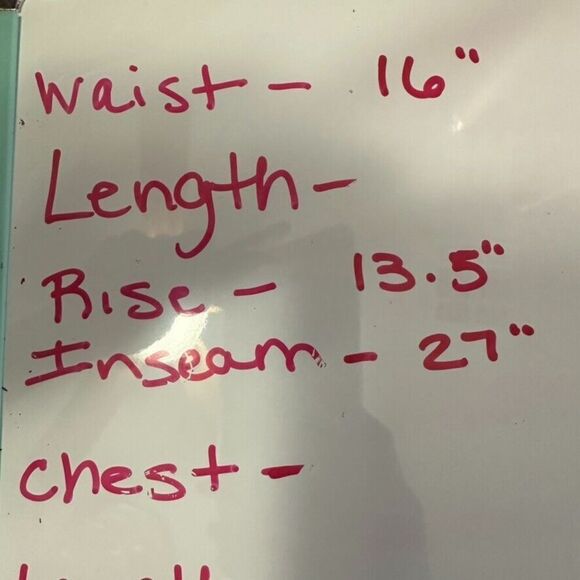 Waist - 16"
Length -
Rise - 13.5"
Inseam - 27"
Chest -